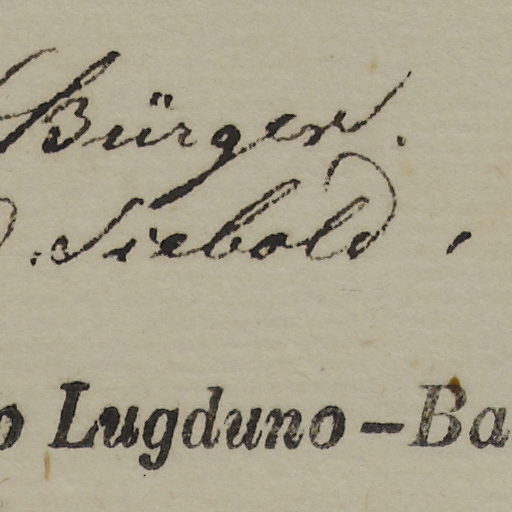 Bürger.
. Siebold .
o Lugduno-Ba